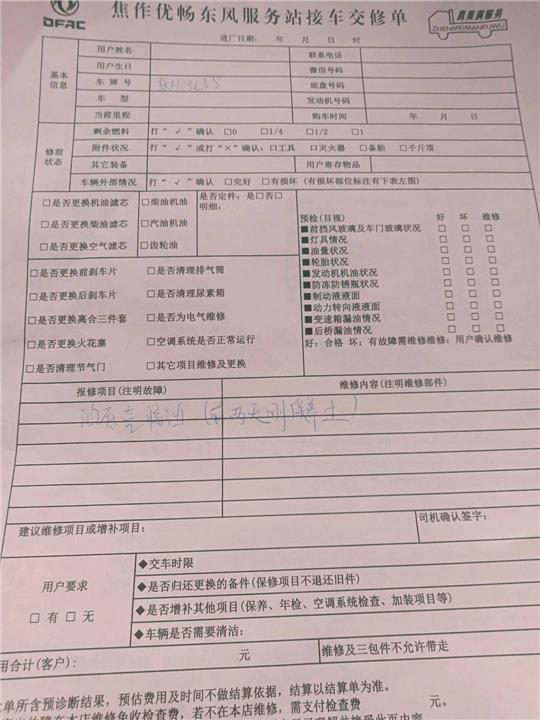 DFAC
焦作优畅东风服务站接车交修单
真美满服务
ZHENMEIMANFUWU
进厂日期： 年 月 日 时
基本信息
用户姓名 联系电话
用户生日 微信号码
车 牌 号 底盘号码
车 型 发动机号码
当前里程 购车时间 年 月 日
修前状态
剩余燃料 打“√”确认 □0 □1/4 □1/2 □1
附件状况 打“√”或打“×”确认：□工具 □灭火器 □备胎 □千斤顶
其它装备 用户寄存物品
车辆外部情况 打“√”确认 □完好 □有损坏（有损坏部位标注有下表左图）
□是否更换机油滤芯 □柴油机油
□是否更换柴油滤芯 □汽油机油
□是否更换空气滤芯 □齿轮油
是否定件：是□否□
明细：
□是否更换前刹车片 □是否清理排气筒
□是否更换后刹车片 □是否清理尿素箱
□是否更换离合三件套 □是否为电气维修
□是否更换火花塞 □空调系统是否正常运行
□是否清理节气门 □其它项目维修及更换
预检(目视) 好 坏 维修
■前挡风玻璃及车门玻璃状况 □ □ □
■灯具情况 □ □ □
■油量状况 □ □ □
■轮胎状况 □ □ □
■发动机机油状况 □ □ □
■防冻防锈瓶状况 □ □ □
■制动液液面 □ □ □
■动力转向液液面 □ □ □
■变速箱漏油情况 □ □ □
■后桥漏油情况 □ □ □
好：合格 坏：有故障需维修维修：用户确认维修
报修项目(注明故障) 维修内容(注明维修部件)
油（前两天刚保养过）
建议维修项目或增补项目：
司机确认签字：
用户要求
□ 有 □ 无
◆交车时限
◆是否归还更换的备件(保修项目不退还旧件)
◆是否增补其他项目(保养、年检、空调系统检查、加装项目等)
◆车辆是否需要清洁：
用合计(客户)： 元 维修及三包件不允许带走
单所含预诊断结果，预估费用及时间不做结算依据，结算以结算单为准。
在本店维修免收检查费，若不在本店维修，需支付检查费 元。